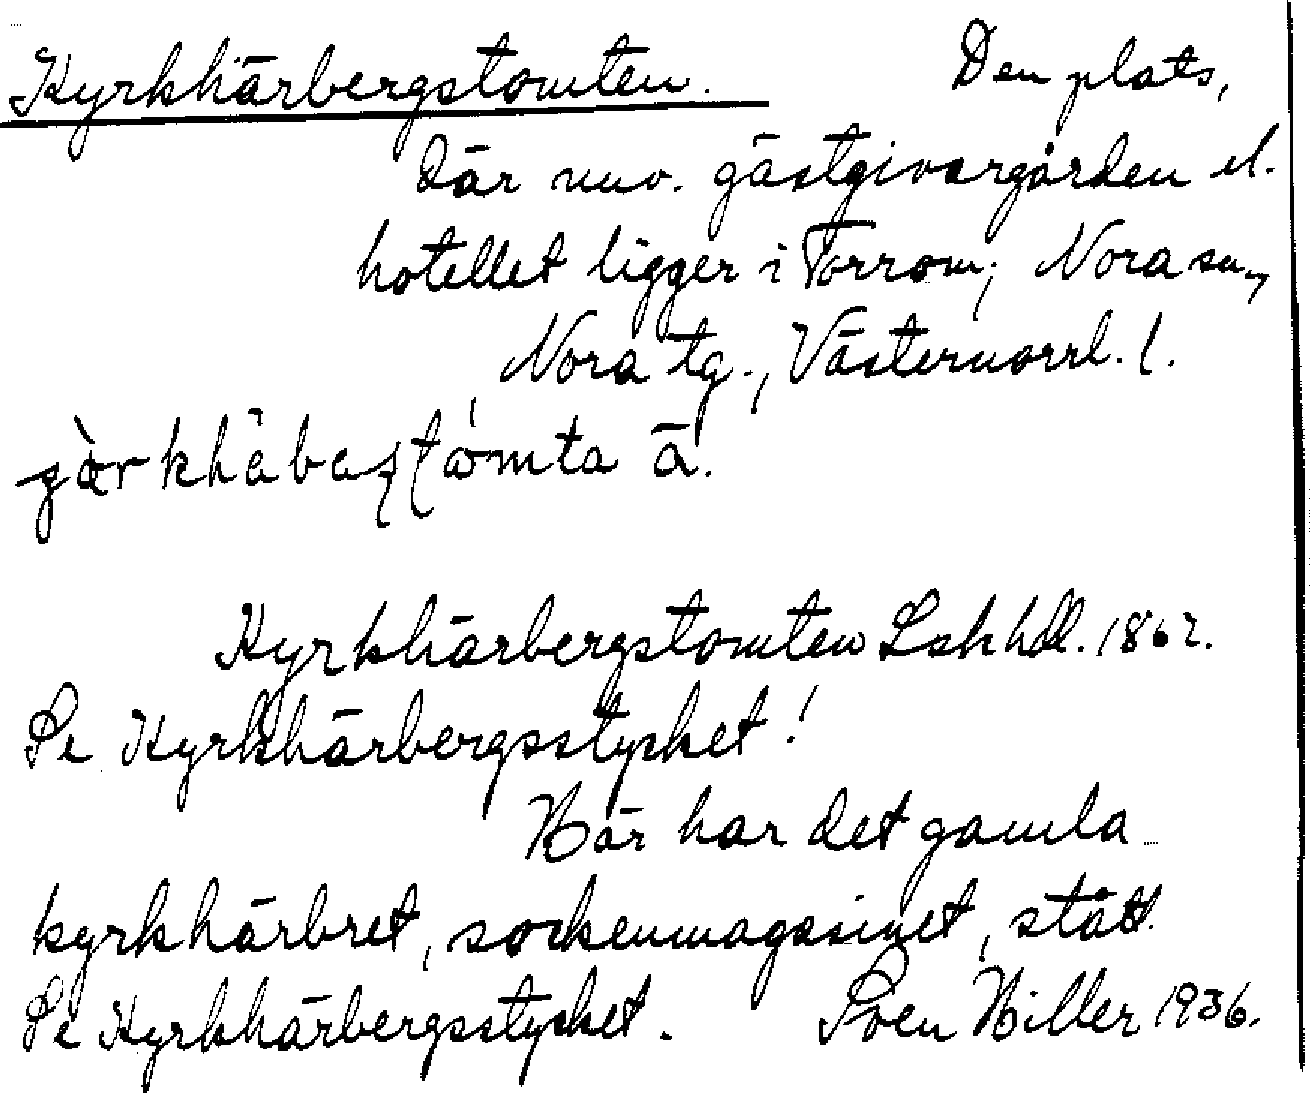 Kyrkhärbergstomten. Den plats,
där nuv. gästgivargården el.
hotellet ligger i Torrom; Nora sn,
Nora tg., Västernorrl. l.
Kyrkhärbergstomten Lskhdl. 1862.
Se Kyrkhärbergsstycket!
Här har det gamla
kyrkhärbret, sockenmagasinet, stått.
Se Kyrkhärbergsstycket. Sven Hiller 1936.